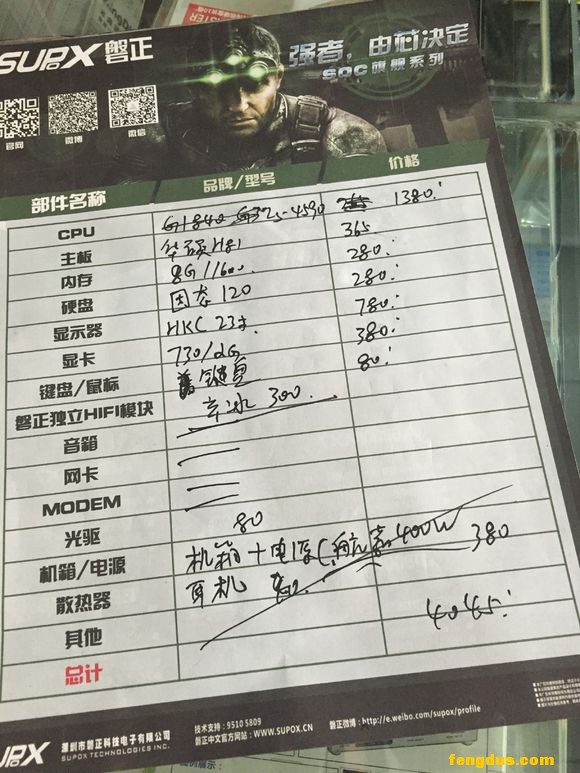 SUPoX 磐正
强者，由芯决定
SOC旗舰系列
官网 微博 微信
部件名称 品牌/型号 价格
CPU G1840 i5-4590 1380
主板 华硕H81 365
内存 8G 1600 280
硬盘 固态 120 280
显示器 HKC 23寸 780
显卡 730/2G 380
键盘/鼠标 键盘 80
磐正独立HIFI模块 300
音箱
网卡
MODEM
光驱 80
机箱/电源 机箱+电源(航嘉400W 380
散热器 耳机
其他 4045
总计
SUPoX 深圳市磐正科技电子有限公司
SUPOX TECHNOLOGIES INC.
技术支持: 9510 5809
磐正中文官方网站: WWW.SUPOX.CN
磐正微博: http://e.weibo.com/supox/profile
fengdus.com